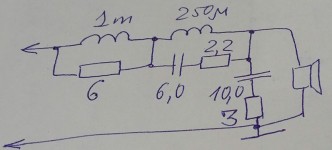 1m
250µ
2,2
6
6,0
10,0
3